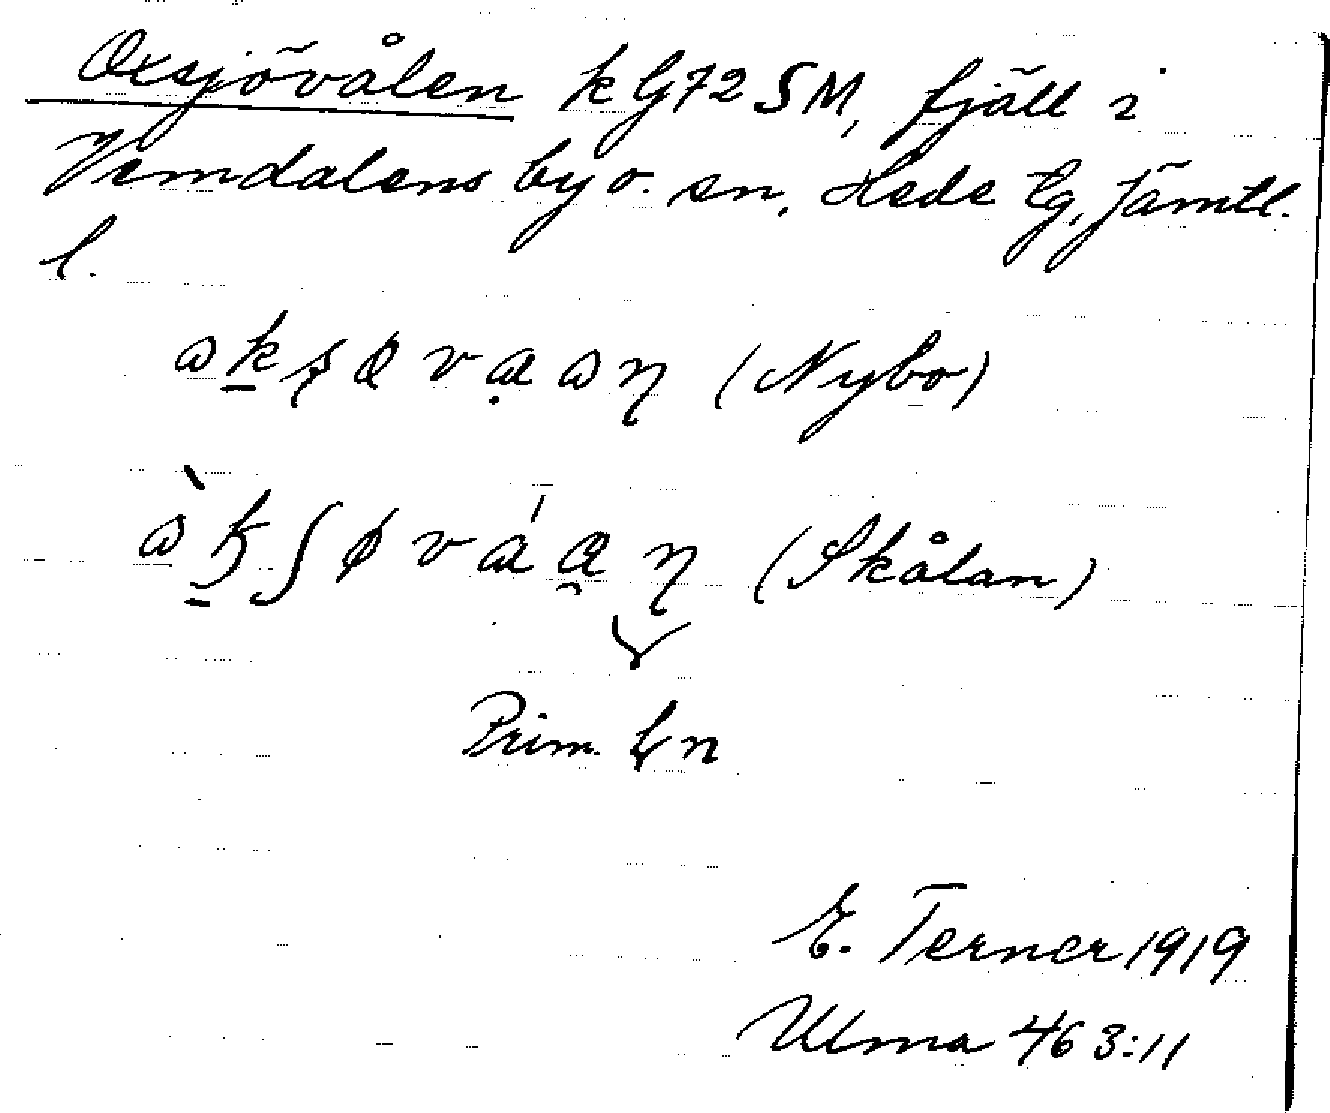 Oxsjövålen k G72 SM, fjäll i
Vemdalens by o. sn, Hede tg, Jämtl.
l.
(Nybo)
(Skålan)
Prim. n
E. Terner 1919
Ulma 463:11